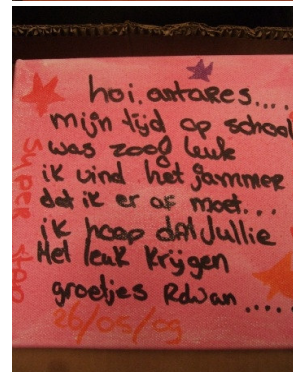 hoi. antares.....
mijn tijd op school
was zoo leuk
ik vind het jammer
dat ik er af moet...
ik hoop dat Jullie
Het leuk Krijgen
groetjes Rdwan.....
26/05/09
super